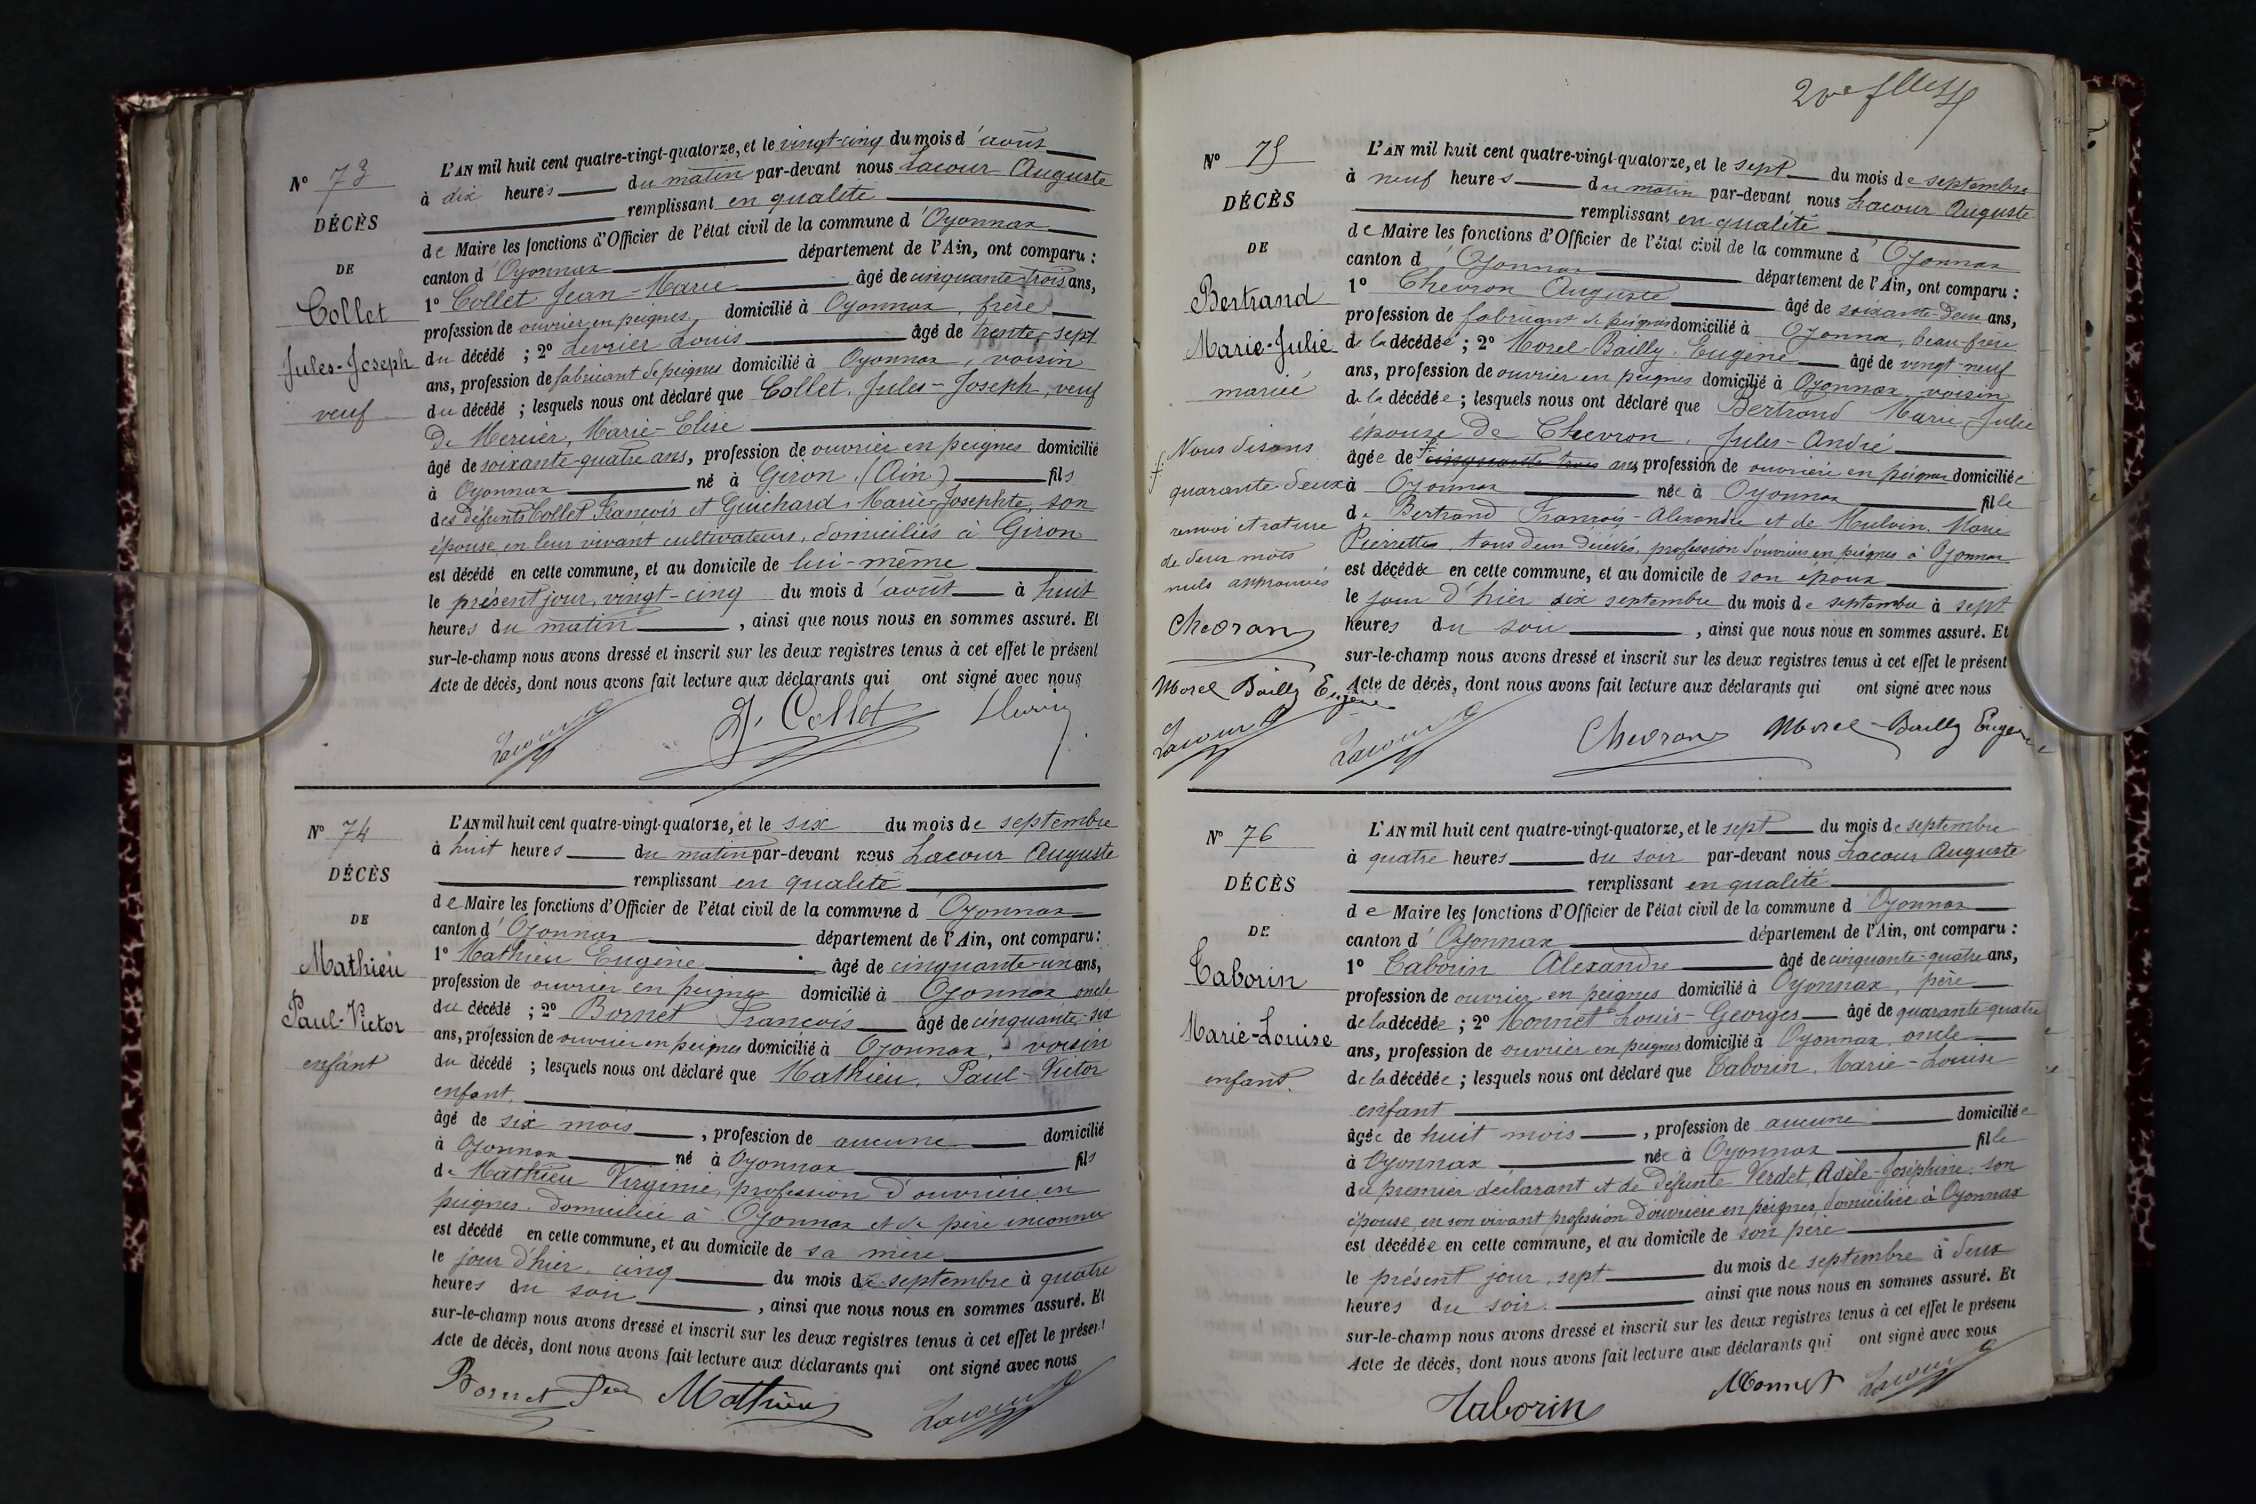 Nº 73
DÉCÈS
DE
Collet
Jules-Joseph
veuf
L'AN mil huit cent quatre-vingt-quatorze, et le vingt-cinq du mois d'août
à dix heures du matin par-devant nous Lacour Auguste
remplissant en qualité
de Maire les fonctions d'Officier de l'état civil de la commune d'Oyonnax
canton d'Oyonnax département de l'Ain, ont comparu :
1º Collet Jean-Marie âgé de cinquante-trois ans,
profession de ouvrier en peignes domicilié à Oyonnax, frère
du décédé ; 2º Levrier Louis âgé de trente-sept
ans, profession de fabricant de peignes domicilié à Oyonnax, voisin
du décédé ; lesquels nous ont déclaré que Collet, Jules-Joseph, veuf
de Mercier, Marie-Elise
âgé de soixante-quatre ans, profession de ouvrier en peignes domicilié
à Oyonnax né à Giron, (Ain) fils
des défunts Collet François et Guichard, Marie-Josephte, son
épouse, en leur vivant cultivateurs, domiciliés à Giron
est décédé en cette commune, et au domicile de lui-même
le présent jour, vingt-cinq du mois d'août à huit
heures du matin, ainsi que nous nous en sommes assuré. Et
sur-le-champ nous avons dressé et inscrit sur les deux registres tenus à cet effet le présent
Acte de décès, dont nous avons fait lecture aux déclarants qui ont signé avec nous
Lacour J. Collet
Nº 74
DÉCÈS
DE
Mathieu
Paul-Victor
enfant
L'AN mil huit cent quatre-vingt-quatorze, et le six du mois de septembre
à huit heures du matin par-devant nous Lacour Auguste
remplissant en qualité
de Maire les fonctions d'Officier de l'état civil de la commune d'Oyonnax
canton d'Oyonnax département de l'Ain, ont comparu :
1º Mathieu Eugène âgé de cinquante-un ans,
profession de ouvrier en peignes domicilié à Oyonnax oncle
du décédé ; 2º Bornet François âgé de cinquante-six
ans, profession de ouvrier en peignes domicilié à Oyonnax, voisin
du décédé ; lesquels nous ont déclaré que Mathieu, Paul-Victor
enfant,
âgé de six mois, profession de aucune domicilié
à Oyonnax né à Oyonnax fils
de Mathieu Virginie, profession d'ouvrière en
peignes, domiciliée à Oyonnax et de père inconnu
est décédé en cette commune, et au domicile de sa mère
le jour d'hier, cinq du mois de septembre à quatre
heures du soir, ainsi que nous nous en sommes assuré. Et
sur-le-champ nous avons dressé et inscrit sur les deux registres tenus à cet effet le présent
Acte de décès, dont nous avons fait lecture aux déclarants qui ont signé avec nous
Bornet Mathieu Lacour
Nº 75
DÉCÈS
DE
Bertrand
Marie-Julie
mariée
Nous disons
quarante-deux
renvoi et rature
de deux mots
nuls approuvés
Chevron
Morel Bailly Eugène
Lacour
L'AN mil huit cent quatre-vingt-quatorze, et le sept du mois de septembre
à neuf heures du matin par-devant nous Lacour Auguste
remplissant en qualité
de Maire les fonctions d'Officier de l'état civil de la commune d'Oyonnax
canton d'Oyonnax département de l'Ain, ont comparu :
1º Chevron Auguste âgé de soixante-deux ans,
profession de fabricant de peignes domicilié à Oyonnax, beau-frère
de la décédée ; 2º Morel-Bailly, Eugène âgé de vingt-neuf
ans, profession de ouvrier en peignes domicilié à Oyonnax, voisin
de la décédée ; lesquels nous ont déclaré que Bertrand Marie Julie
épouse de Chevron, Jules-André
âgée de cinquante trois ans, profession de ouvrière en peignes domiciliée
à Oyonnax née à Oyonnax fille
de Bertrand François-Alexandre et de Marie
Pierrette, tous deux décédés, profession d'ouvriers en peignes à Oyonnax
est décédée en cette commune, et au domicile de son époux
le jour d'hier six septembre du mois de septembre à sept
heures du soir, ainsi que nous nous en sommes assuré. Et
sur-le-champ nous avons dressé et inscrit sur les deux registres tenus à cet effet le présent
Acte de décès, dont nous avons fait lecture aux déclarants qui ont signé avec nous
Lacour Chevron Morel-Bailly Eugène
Nº 76
DÉCÈS
DE
Taborin
Marie-Louise
enfant.
L'AN mil huit cent quatre-vingt-quatorze, et le sept du mois de septembre
à quatre heures du soir par-devant nous Lacour Auguste
remplissant en qualité
de Maire les fonctions d'Officier de l'état civil de la commune d'Oyonnax
canton d'Oyonnax département de l'Ain, ont comparu :
1º Taborin Alexandre âgé de cinquante-quatre ans,
profession de ouvrier en peignes domicilié à Oyonnax, père
de la décédée ; 2º Monnet Louis-Georges âgé de quarante-quatre
ans, profession de ouvrier en peignes domicilié à Oyonnax, oncle
de la décédée ; lesquels nous ont déclaré que Taborin, Marie-Louise
enfant
âgée de huit mois, profession de aucune domiciliée
à Oyonnax née à Oyonnax fille
du premier déclarant et de défunte Verdet, Adèle-Joséphine, son
épouse, en son vivant profession d'ouvrière en peignes, domiciliée à Oyonnax
est décédée en cette commune, et au domicile de son père
le présent jour, sept du mois de septembre à deux
heures du soir. ainsi que nous nous en sommes assuré. Et
sur-le-champ nous avons dressé et inscrit sur les deux registres tenus à cet effet le présent
Acte de décès, dont nous avons fait lecture aux déclarants qui ont signé avec nous
Taborin Monnet Lacour